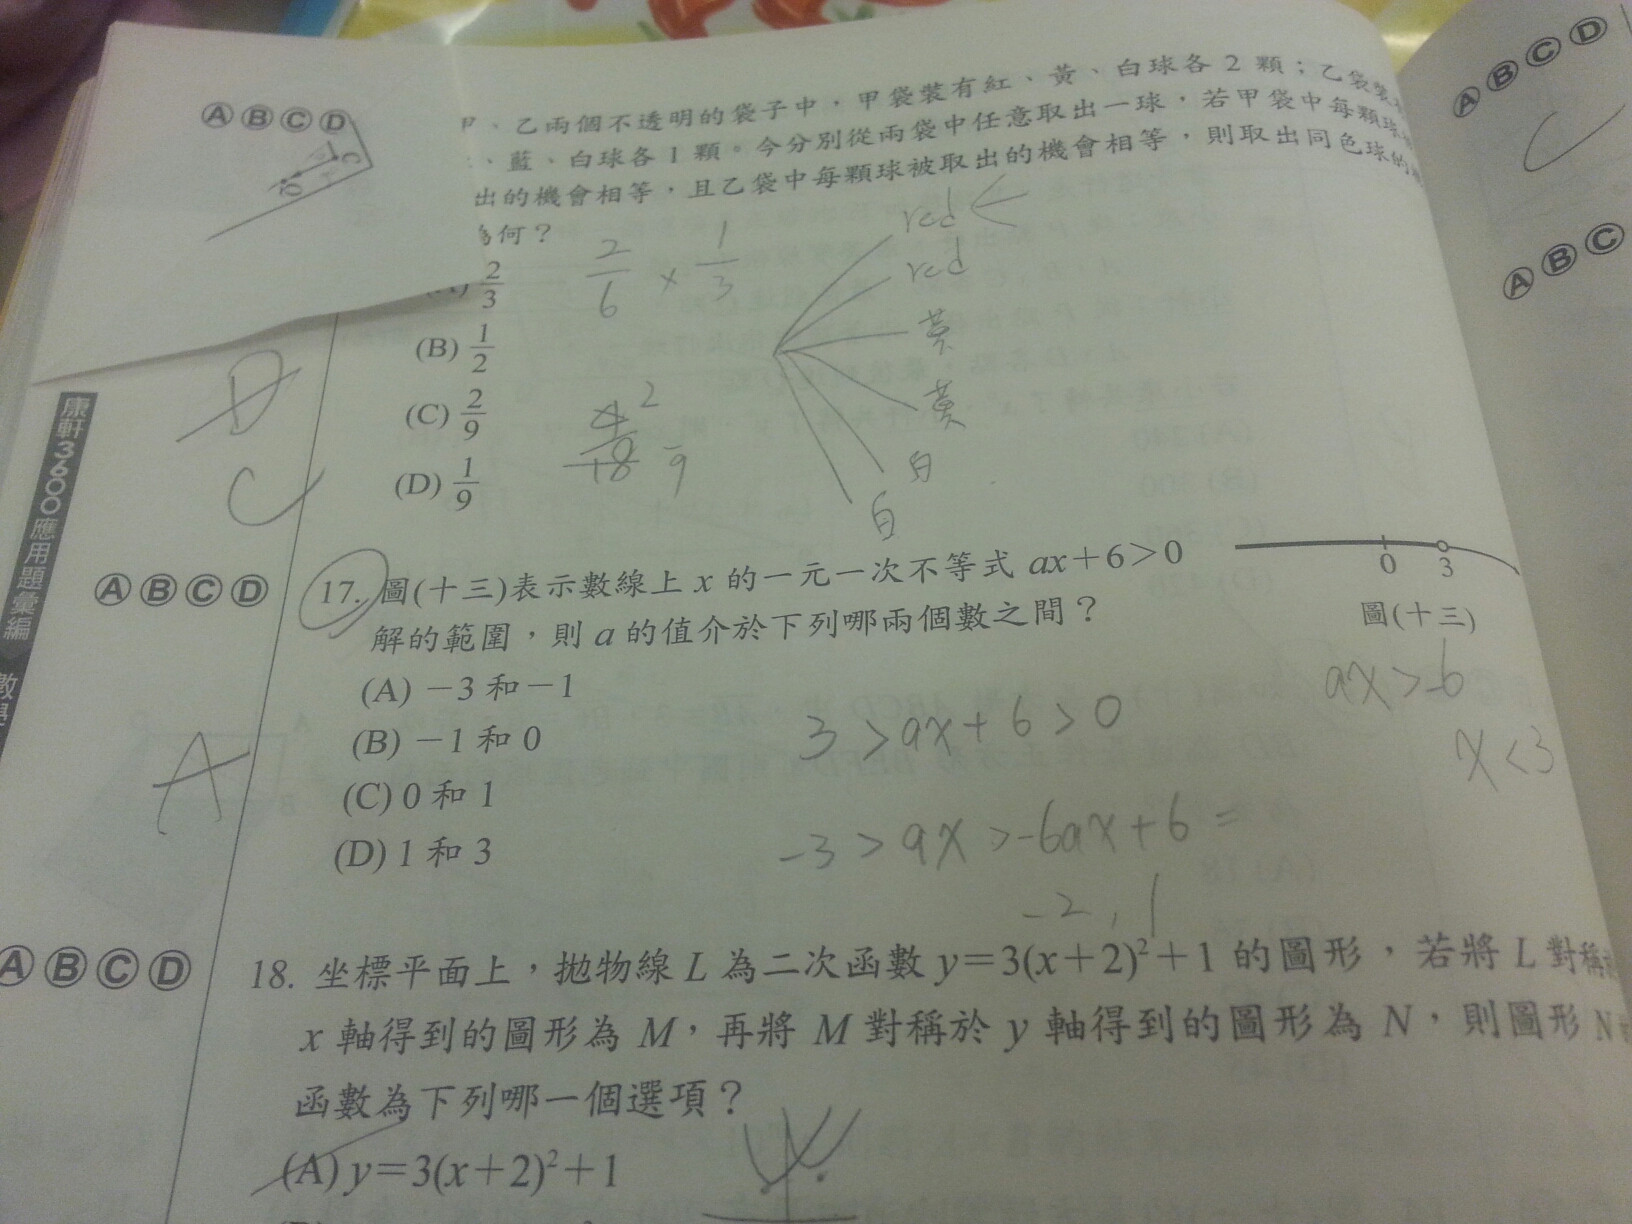 Ⓐ Ⓑ Ⓒ Ⓓ
、乙兩個不透明的袋子中,甲袋裝有紅、黃、白球各 2 顆;乙袋裝
、藍、白球各 1 顆。今分別從兩袋中任意取出一球,若甲袋中每顆球
出的機會相等,且乙袋中每顆球被取出的機會相等,則取出同色球的
何?
2/3
(B) 1/2
(C) 2/9
(D) 1/9
2/6 × 1/3
red
red
黃
黃
白
白
4/18 2/9
D
C
康軒3600應用題彙編
Ⓐ Ⓑ Ⓒ Ⓓ
17. 圖(十三)表示數線上 x 的一元一次不等式 ax+6>0
解的範圍,則 a 的值介於下列哪兩個數之間?
0 3
圖(十三)
(A) -3 和 -1
(B) -1 和 0
(C) 0 和 1
(D) 1 和 3
A
ax>-6
x<3
3>ax+6>0
-3>ax>-6ax+6=
-2,1
Ⓐ Ⓑ Ⓒ Ⓓ
18. 坐標平面上,拋物線 L 為二次函數 y=3(x+2)²+1 的圖形,若將 L 對稱
x 軸得到的圖形為 M,再將 M 對稱於 y 軸得到的圖形為 N,則圖形 N
函數為下列哪一個選項?
(A) y=3(x+2)²+1
Ⓐ Ⓑ Ⓒ Ⓓ
C
Ⓐ Ⓑ Ⓒ